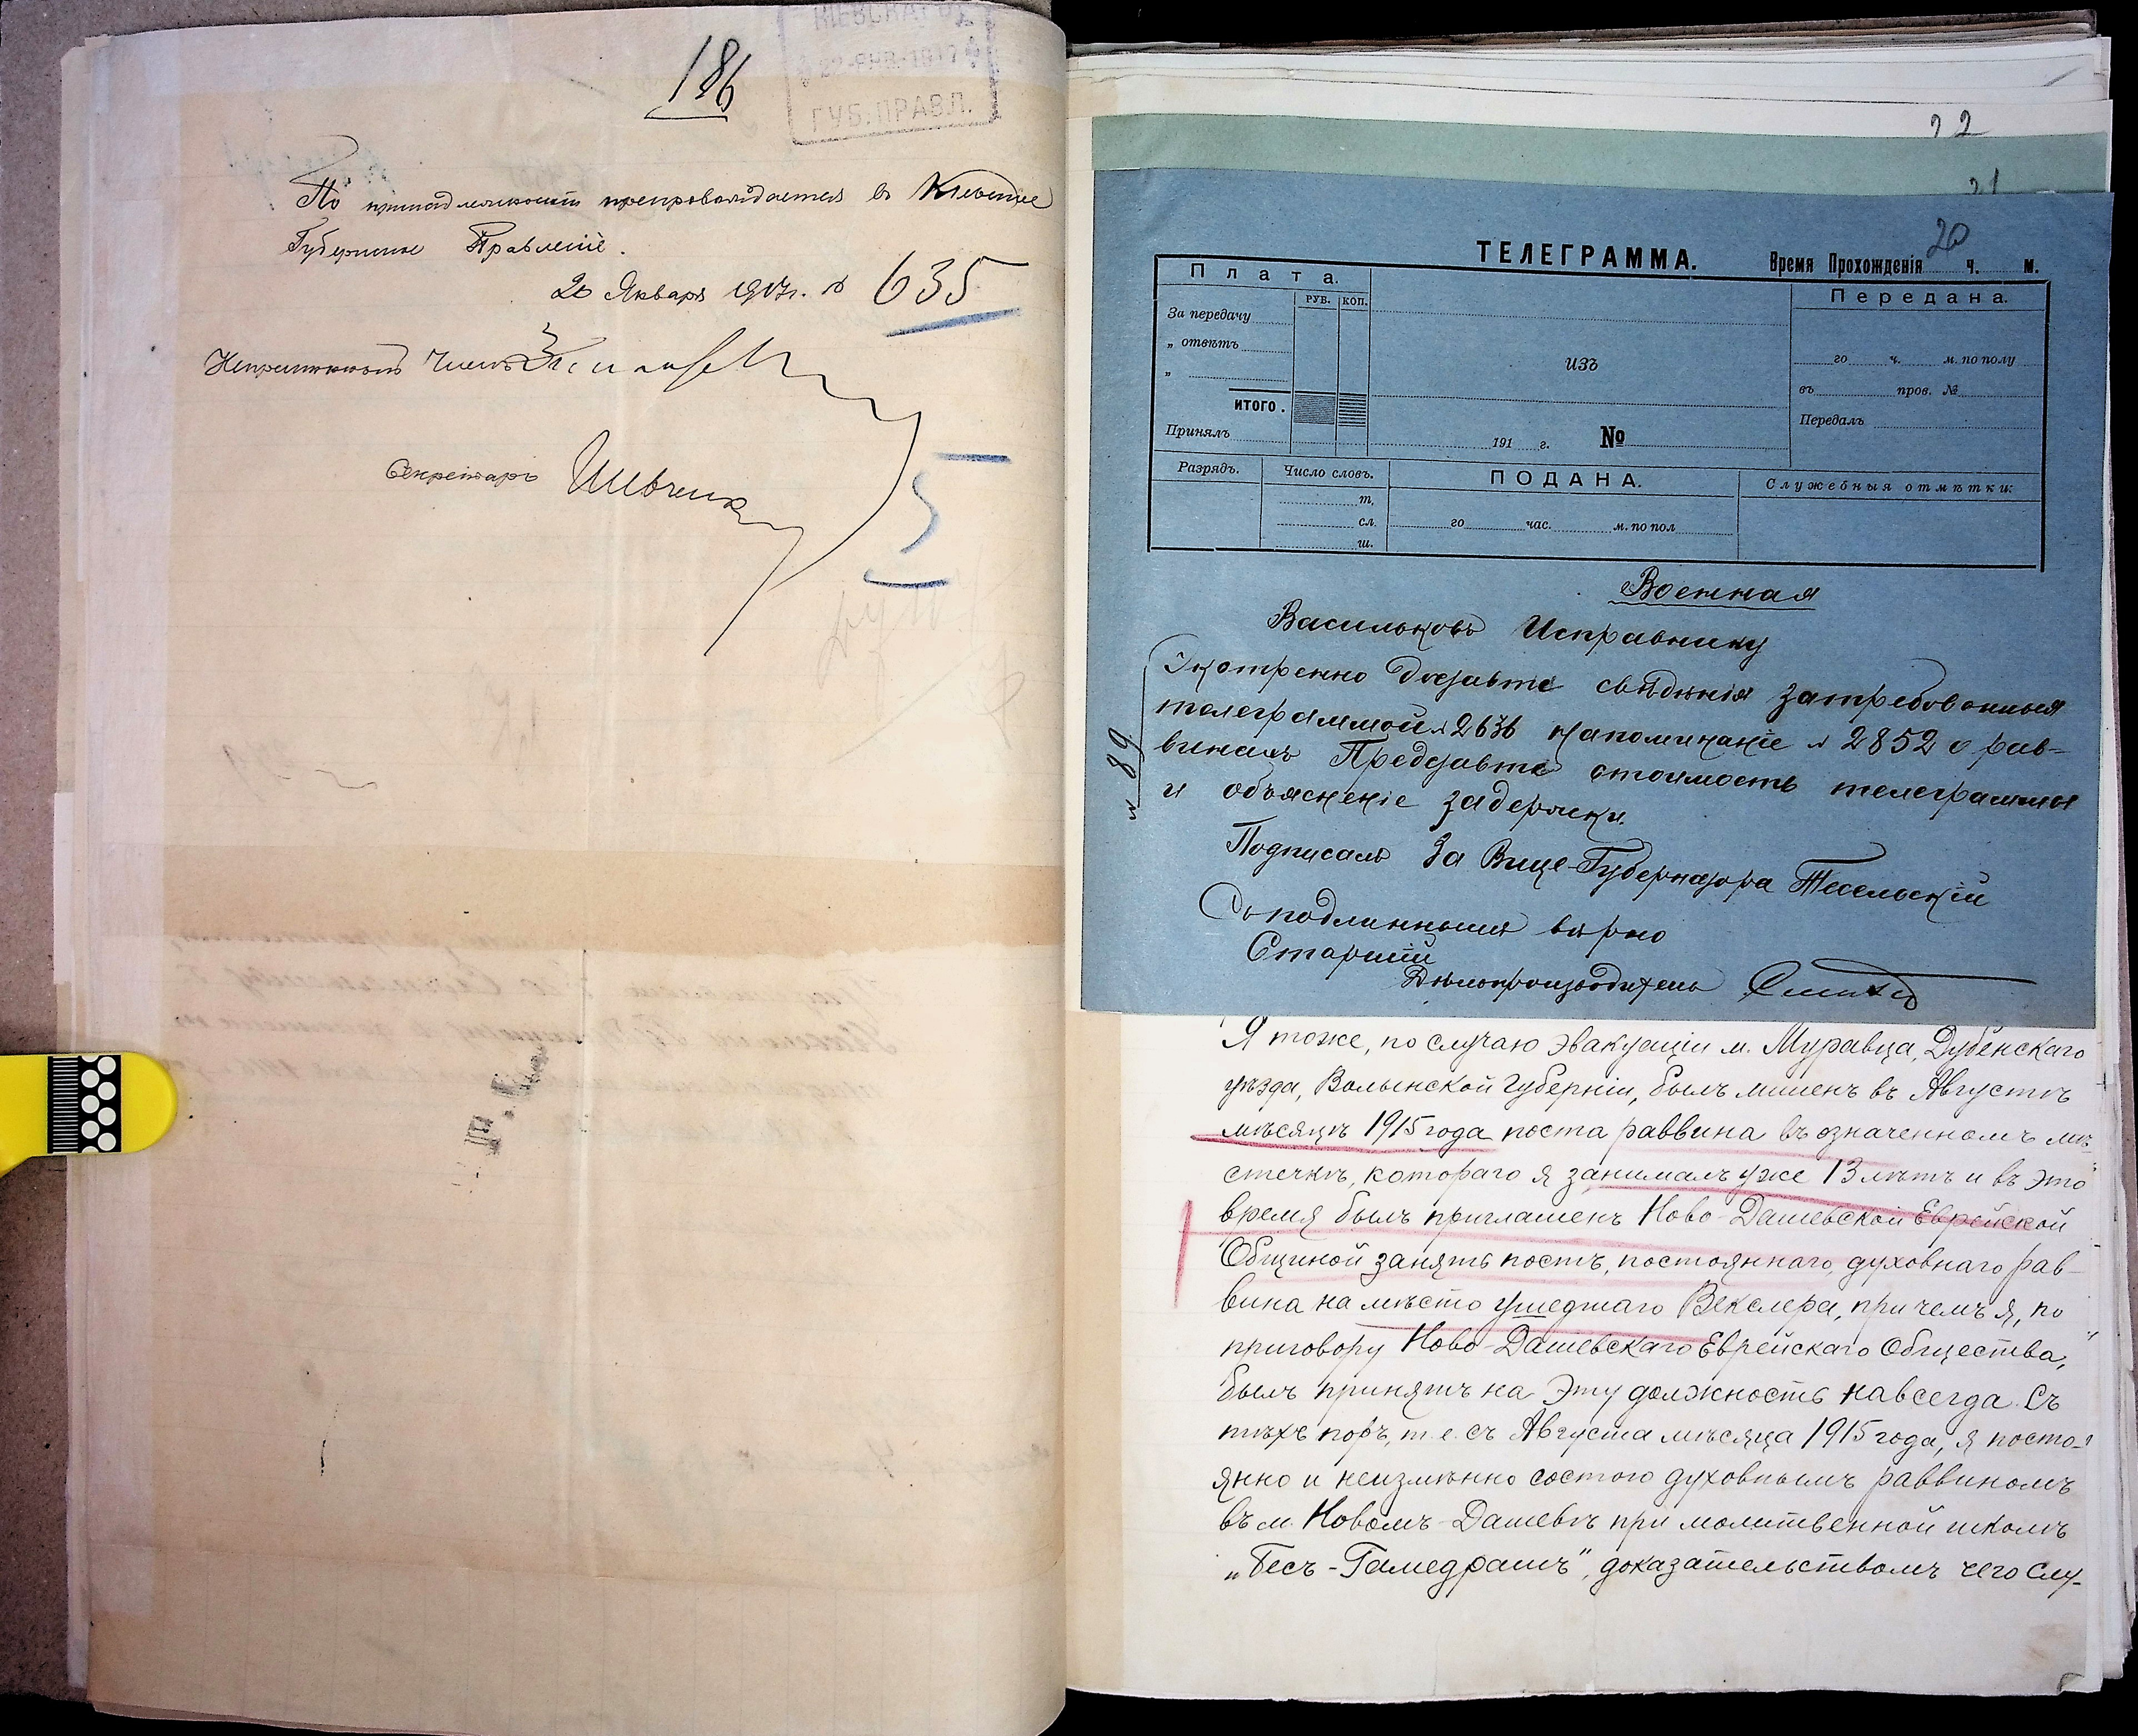 186
КІЕВСКАГО
22 ЯНВ. 1917
ГУБ. ПРАВЛ.
По принадлежности препровождается въ Кіевское
Губернское Правленіе.
20 Января 1917 г. № 635
Непремѣнный Членъ
Секретарь
5
22
21
20
ТЕЛЕГРАММА.
Время Прохожденія ч. м.
Плата.
РУБ. КОП.
За передачу
„ отвѣтъ
„
ИТОГО.
Принялъ
изъ
191 г. №
Передана.
го ч. м. по полу
въ пров. №
Передалъ
Разрядъ.
Число словъ.
т.
сл.
ш.
ПОДАНА.
го час. м. по пол
Служебныя отмѣтки:
Военная
Васильковъ Исправнику
Экстренно доставте свѣдѣнія затребованныя
телеграммой № 2636 напоминаніе № 2852 о рав-
винахъ Представте стоимость телеграммы
и объясненіе задержки.
№ 89
Подписалъ За Вице-Губернатора Тесельскій
Съ подлиннымъ вѣрно
Старшій
Дѣлопроизводитель
Я тоже, по случаю эвакуаціи м. Муравца, Дубенскаго
уѣзда, Волынской Губерніи, былъ лишенъ въ Августѣ
мѣсяцѣ 1915 года поста раввина въ означенномъ мѣ-
стечкѣ, котораго я занималъ уже 13 лѣтъ и въ это
время былъ приглашенъ Ново-Дашевской Еврейской
Общиной занять постъ, постояннаго, духовнаго рав-
вина на мѣсто ушедшаго Векслера, при чемъ я, по
приговору Ново-Дашевскаго Еврейскаго Общества,
былъ принятъ на эту должность навсегда. Съ
тѣхъ поръ, т. е. съ Августа мѣсяца 1915 года, я посто-
янно и неизмѣнно состою духовнымъ раввиномъ
въ м. Новомъ-Дашевѣ при молитвенной школѣ
„Бесъ-Гамедрашъ", доказательствомъ чего слу-